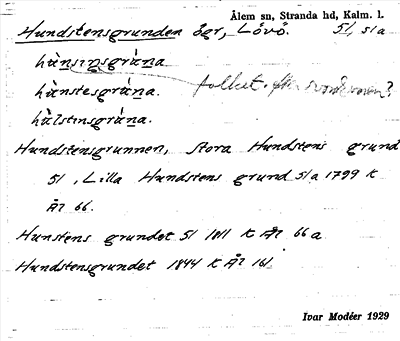 Ålem sn, Stranda hd, Kalm. l.
Hundstensgrunden ögr, Lövö. 51, 51a
hùnsınsgrùna
hùnstesgrùna. folket.
hùlstınsgrùna.
Hundstensgrunnen, Stora Hundstens grund
51, Lilla Hundstens grund 51a 1799 K
Äl 66.
Hunstens grundet 51 1811 K Äl 66a
Hundstensgrundet 1844 K Äl 161.
Ivar Modéer 1929